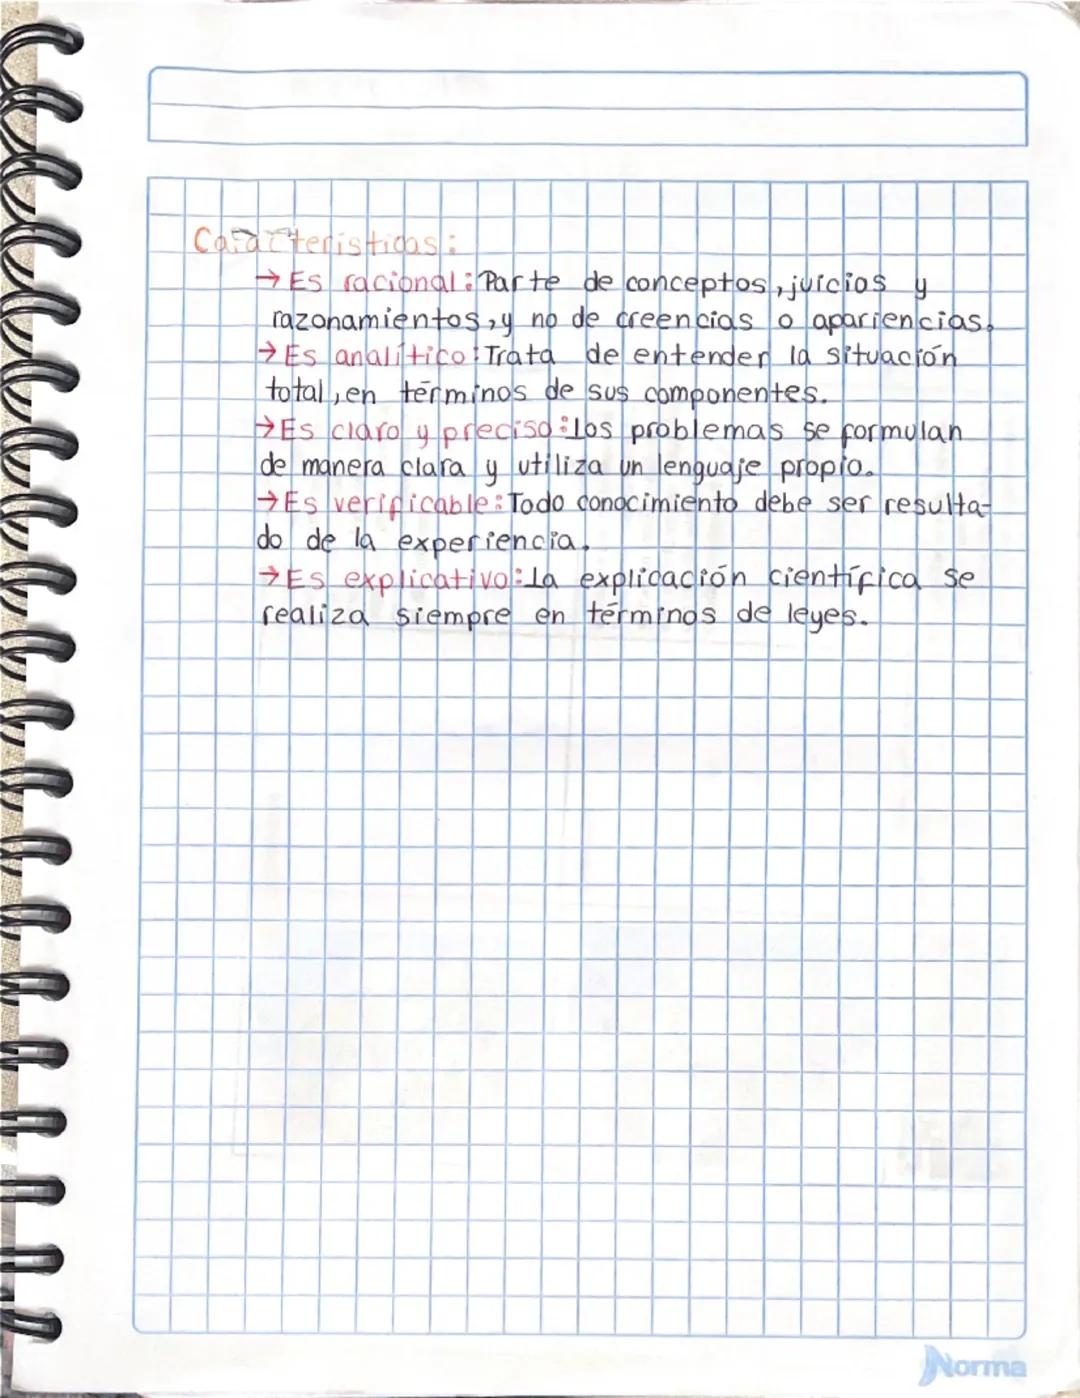 Características:
→ Es racional: Parte de conceptos, juicios y
razonamientos, y no de creencias o apariencias.
→ Es analítico: Trata de entender la situación
total, en términos de sus componentes.
→ Es claro y preciso: Los problemas se formulan
de manera clara y utiliza un lenguaje propio.
→ Es verificable: Todo conocimiento debe ser resulta-
do de la experiencia.
→ Es explicativo: La explicación científica se
realiza siempre en términos de leyes.
Norma